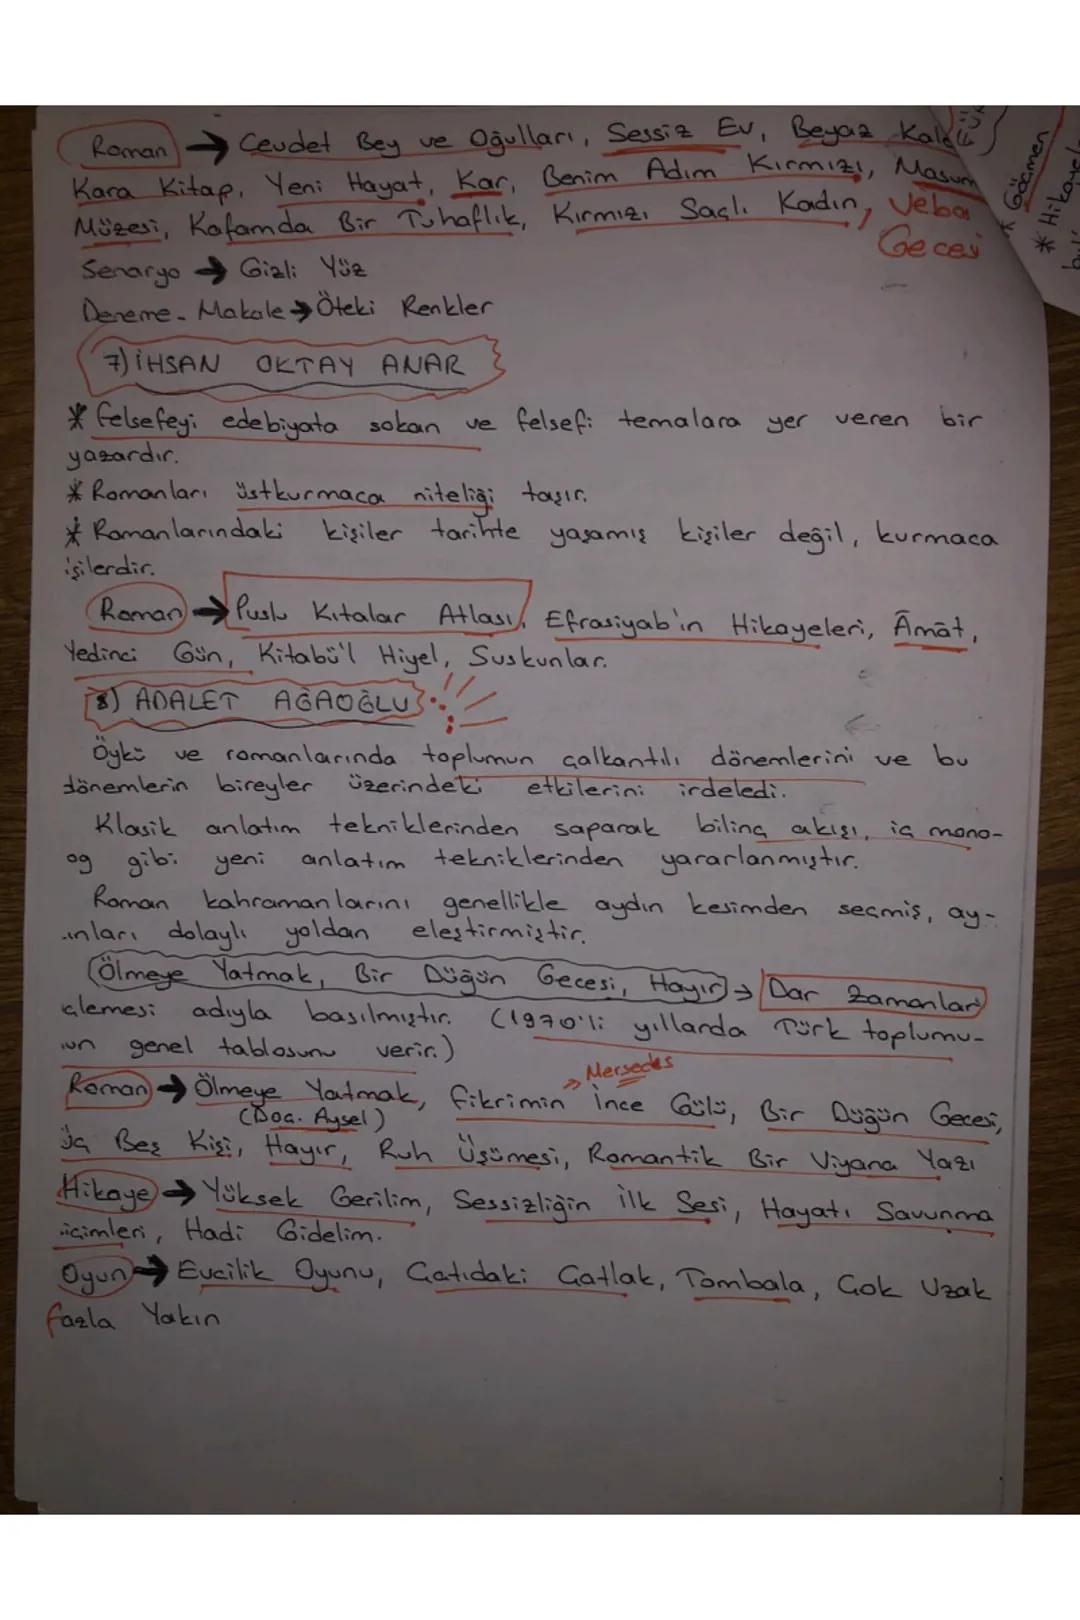 Roman → Cevdet Bey ve Oğulları, Sessiz Ev, Beyaz Kale
Kara Kitap, Yeni Hayat, Kar, Benim Adım Kırmızı, Masum
Müzesi, Kafamda Bir Tuhaflık, Kırmızı Saçlı Kadın, Veba
Geces
Senaryo → Gizli Yüz
Deneme - Makale → Öteki Renkler
7) İHSAN OKTAY ANAR
* Felsefeyi edebiyata sokan ve felsefi temalara yer veren bir
yazardır.
* Romanları üstkurmaca niteliği taşır.
* Romanlarındaki kişiler tarihte yaşamış kişiler değil, kurmaca
işilerdir.
Roman → Puslu Kıtalar Atlası, Efrasiyab'ın Hikayeleri, Âmât,
Yedinci Gün, Kitabü'l Hiyel, Suskunlar.
8) ADALET AĞAOĞLU
Öykü ve romanlarında toplumun çalkantılı dönemlerini ve bu
dönemlerin bireyler üzerindeki etkilerini irdeledi.
Klasik anlatım tekniklerinden saparak bilinç akışı, iç mono-
og gibi yeni anlatım tekniklerinden yararlanmıştır.
Roman kahramanlarını genellikle aydın kesimden seçmiş, ay-
ınları dolaylı yoldan eleştirmiştir.
(Ölmeye Yatmak, Bir Düğün Gecesi, Hayır) → Dar Zamanlar
çlemesi adıyla basılmıştır. (1970'li yıllarda Türk toplumu-
un genel tablosunu verir.)
Mersedes
Roman → Ölmeye Yatmak, Fikrimin İnce Gülü, Bir Düğün Gecesi,
(Doç. Aysel)
Üç Beş Kişi, Hayır, Ruh Üşümesi, Romantik Bir Viyana Yazı
Hikaye → Yüksek Gerilim, Sessizliğin İlk Sesi, Hayatı Savunma
içimleri, Hadi Gidelim.
Oyun → Evcilik Oyunu, Çatıdaki Çatlak, Tombala, Çok Uzak
fazla Yakın
* Göçmen